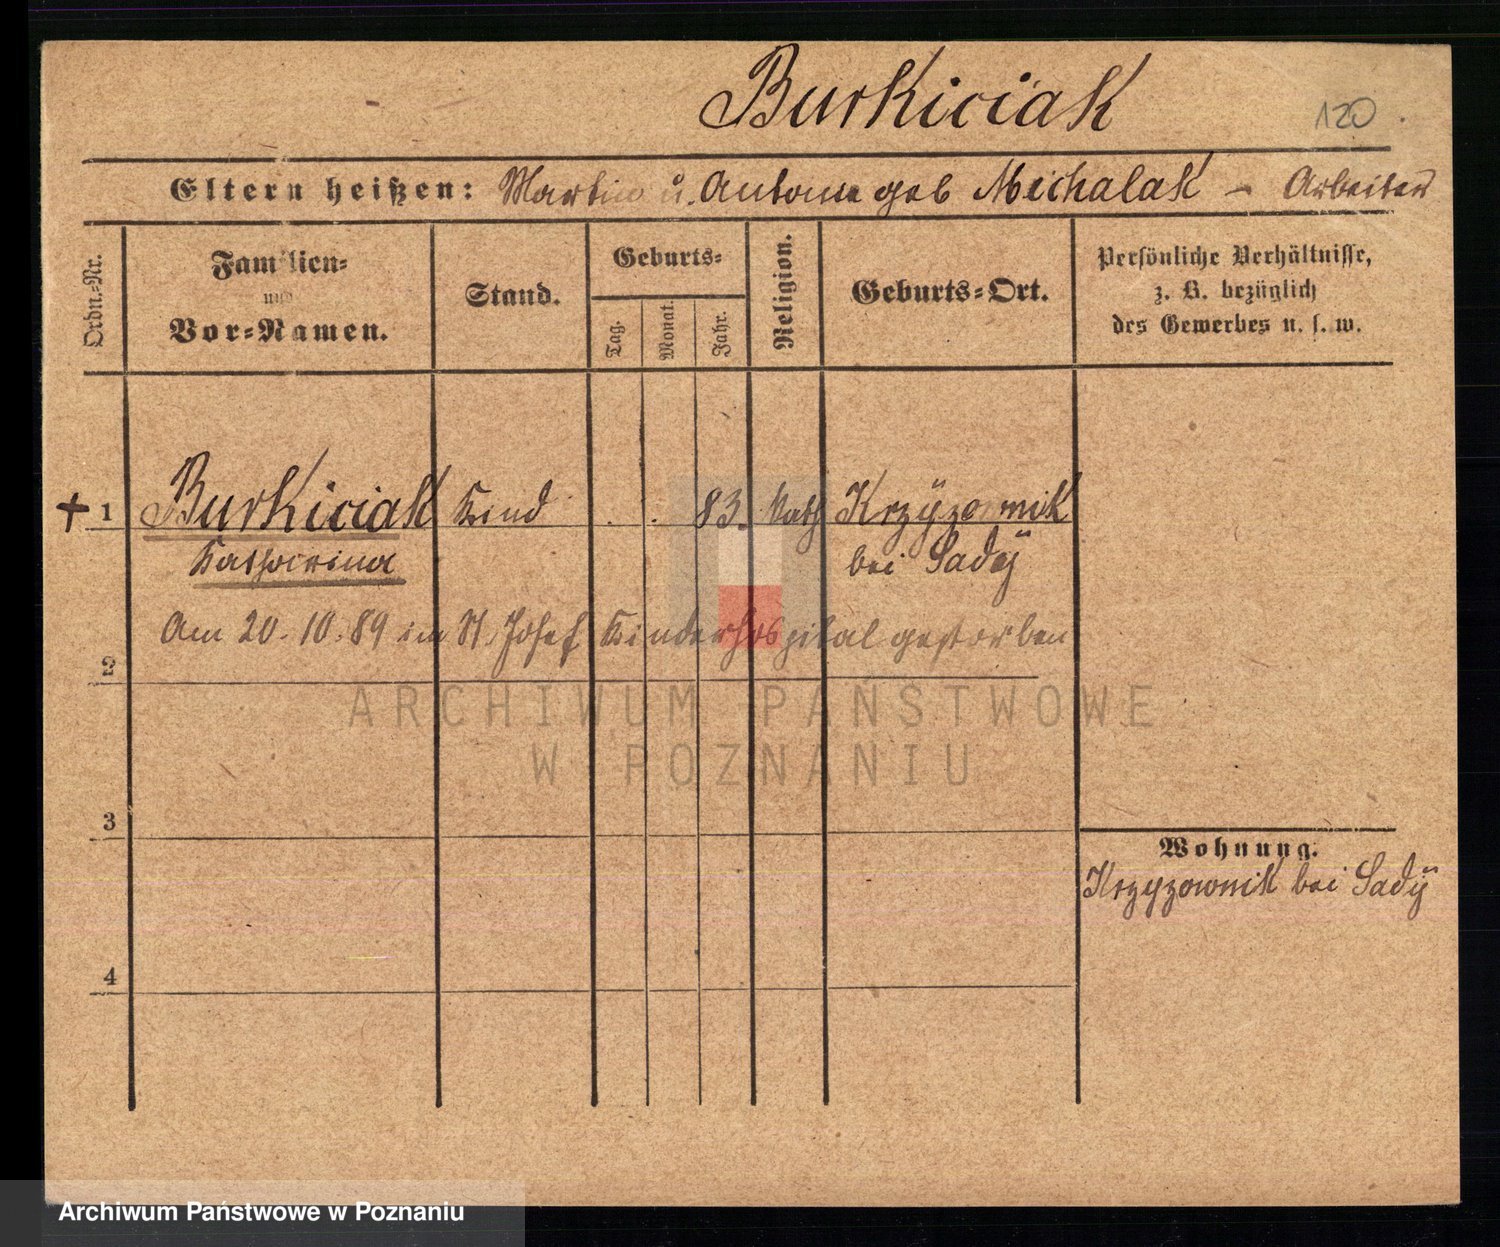 Burkiciak
120.
Eltern heißen: Martin u. Antonie geb Michalak – Arbeiter
Ordn.-Nr.
Familien-
und
Vor-Namen.
Stand.
Geburts-
Tag.
Monat.
Jahr.
Religion.
Geburts-Ort.
Persönliche Verhältnisse,
z. B. bezüglich
des Gewerbes u. s. w.
+ 1 Burkiciak Kind . . 83. Kath Krzÿzownik
Katharina bei Sadÿ
Am 20.10.89 im St. Josef Kinderhospital gestorben
2
ARCHIWUM PAŃSTWOWE
W POZNANIU
3
Wohnung.
Krzyzownik bei Sadÿ
4
Archiwum Państwowe w Poznaniu